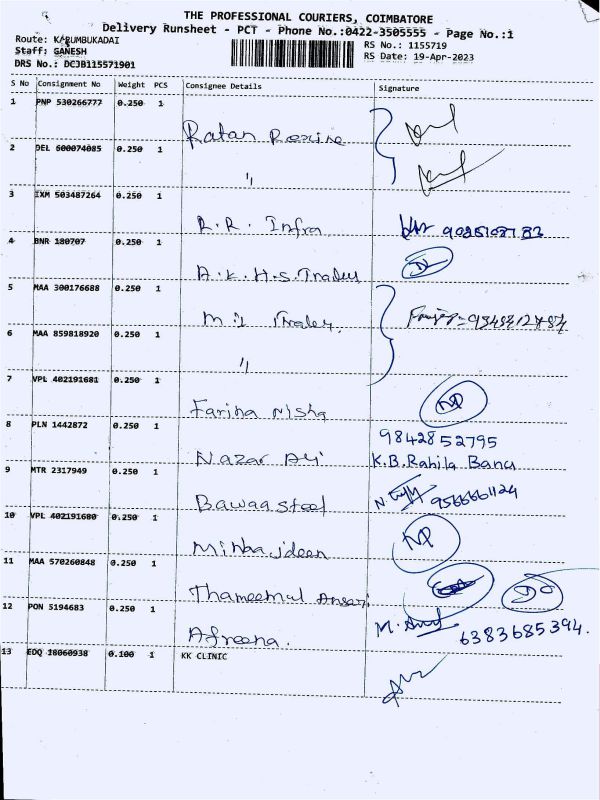 THE PROFESSIONAL COURIERS, COIMBATORE
Delivery Runsheet - PCT - Phone No.:0422-3505555 - Page No.:1
Route: KARUMBUKADAI RS No.: 1155719
Staff: GANESH RS Date: 19-Apr-2023
DRS No.: DCJB115571901
S No Consignment No Weight PCS Consignee Details Signature
1 PNP 530266777 0.250 1
Ratan Rexine
2 DEL 600074085 0.250 1
"
3 IXM 503487264 0.250 1
R.R. Infra
4 BNR 180707 0.250 1
A.K.H.S. Trades
5 MAA 300176688 0.250 1
M.I Trades.
6 MAA 859818920 0.250 1
"
7 VPL 402191681 0.250 1
Fariha Nisha
8 PLN 1442872 0.250 1
9842852795
Nazar Ali K.B.Rahila Banu
9 MTR 2317949 0.250 1
Bawaa steel 9566661124
10 VPL 402191680 0.250 1
Minhajdeen
11 MAA 570260848 0.250 1
Thameemul Ansari
12 PON 5194683 0.250 1
Afreena. 6383685394.
13 EDQ 18060938 0.100 1 KK CLINIC